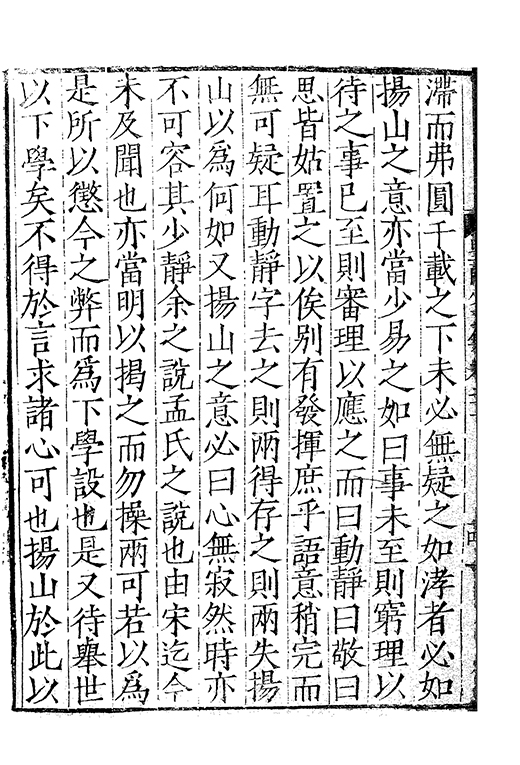 滯而弗圓千載之下未必無疑之如涍者必如
揚山之意亦當少易之如曰事未至則窮理以
待之事已至則審理以應之而曰動靜曰敬曰
思皆姑置之以俟別有發揮庶乎語意稍完而
無可疑耳動靜字去之則兩得存之則兩失揚
山以爲何如又揚山之意必曰心無寂然時亦
不可容其少靜余之說孟氏之說也由宋迄今
未及聞也亦當明以掲之而勿操兩可若以爲
是所以懲今之弊而爲下學設也是又待舉世
以下學矣不得於言求諸心可也揚山於此以